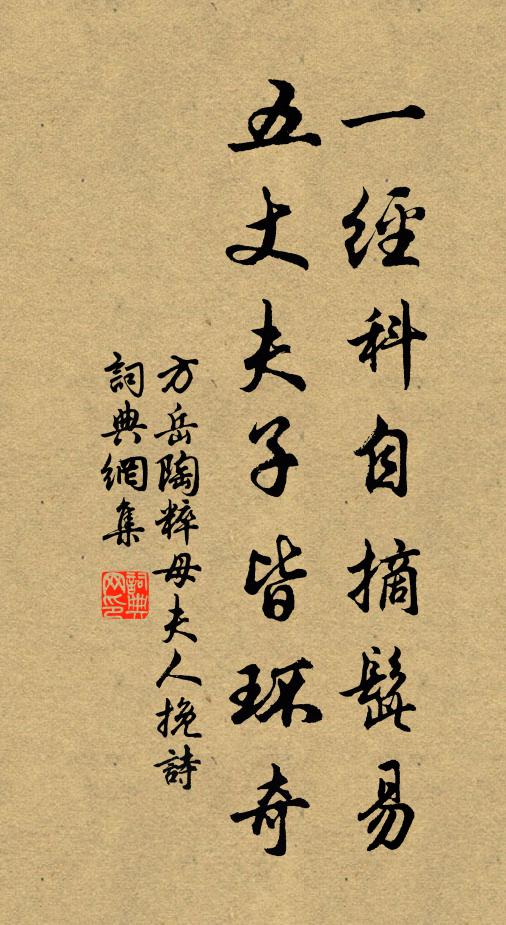 一經科自摘髭易
五丈夫子皆环奇
方岳陶粹母夫人挽詩
詞典網集
詞典
网印